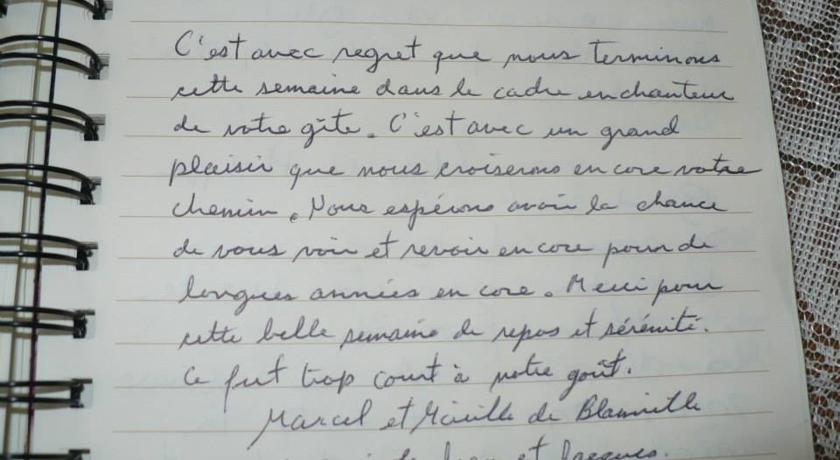 C'est avec regret que nous terminons
cette semaine dans le cadre enchanteur
de votre gîte. C'est avec un grand
plaisir que nous croiserons encore votre
chemin. Nous espérons avoir la chance
de vous voir et revoir encore pour de
longues années encore. Merci pour
cette belle semaine de repos et sérénité.
Ce fut trop court à notre goût.
Marcel et Mireille de Blainville
et Jacques.